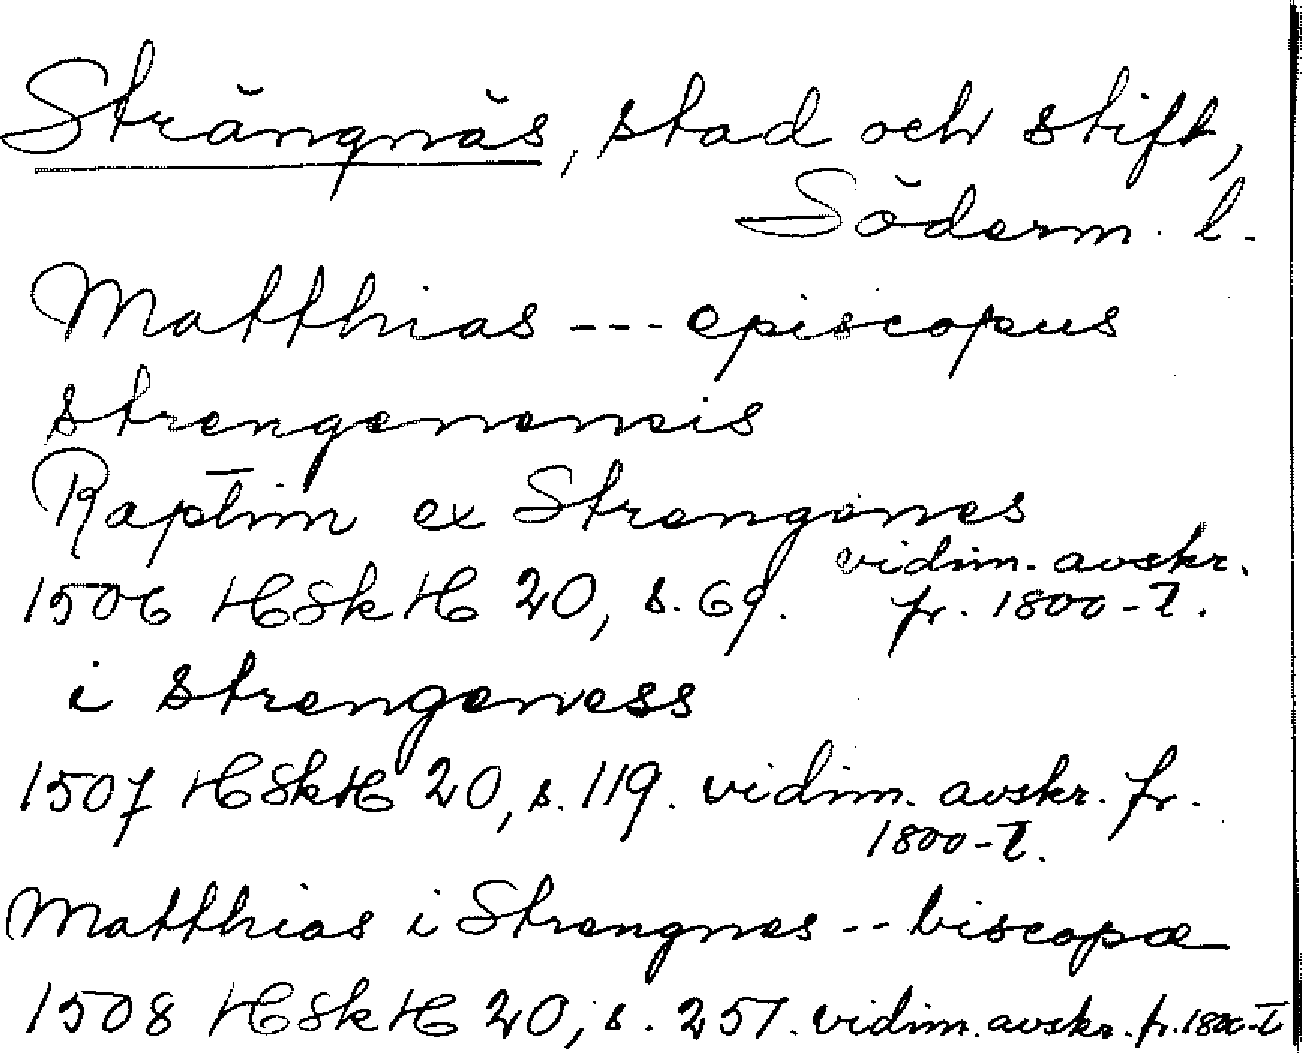 Strängnäs, stad och stift,
Söderm. l.
Matthias --- episcopus
strengenensis
Raptim ex Strengenes
1506 HSkH 20, s. 69. vidim. avskr.
fr. 1800-t.
i strengeness
1507 HSkH 20, s. 119. vidim. avskr. fr.
1800-t.
Matthias i Strengnes -- biscopæ
1508 HSkH 20, s. 257. vidim. avskr. fr. 1800-t